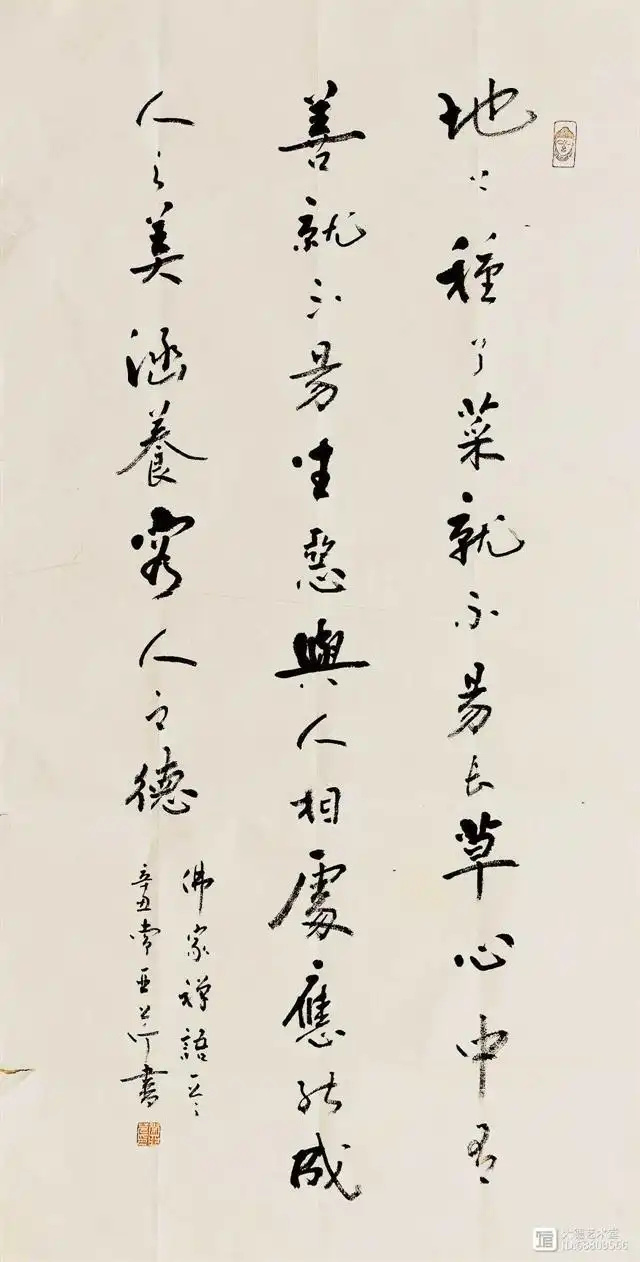 地上種了菜就不易长草心中有
善就不易生惡與人相處應能成
人之美涵養容人之德
佛家禪語一
辛丑常亚書
ID:68809566